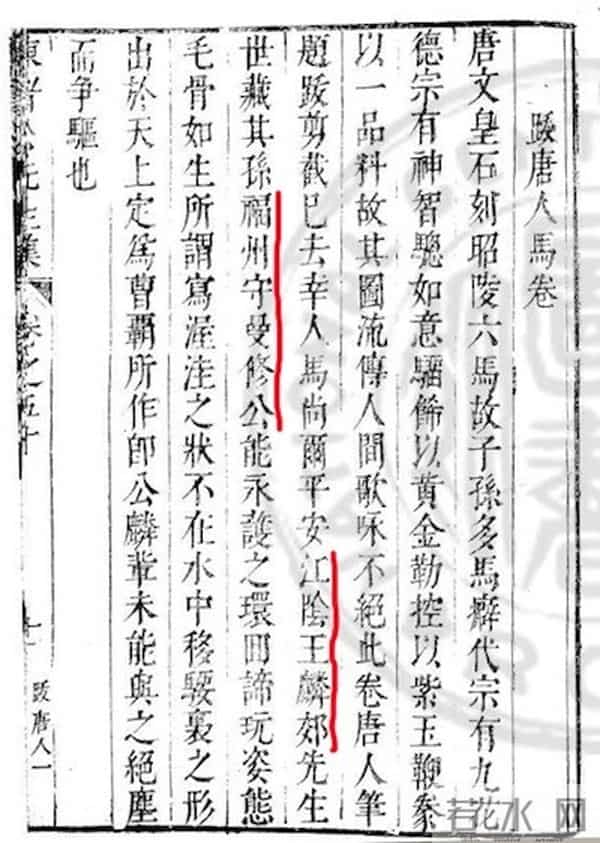 跋唐人馬卷
唐文皇石刻昭陵六馬故子孫多馬癖代宗有九花
德宗有神智驄如意騮飾以黃金勒控以紫玉鞭豢
以一品料故其圖流傳人間歌咏不絕此卷唐人筆
題跋剪截已去幸人馬尚爾平安江陰王麟郊先生
世藏其孫福州守曼修公能永護之環田諦玩姿態
毛骨如生所謂寫渥洼之狀不在水中移騕裊之形
出於天上定爲曹霸所作卽公麟輩未能與之絕塵
而爭驅也
先生集
卷之五十
跋唐人一
若水 网